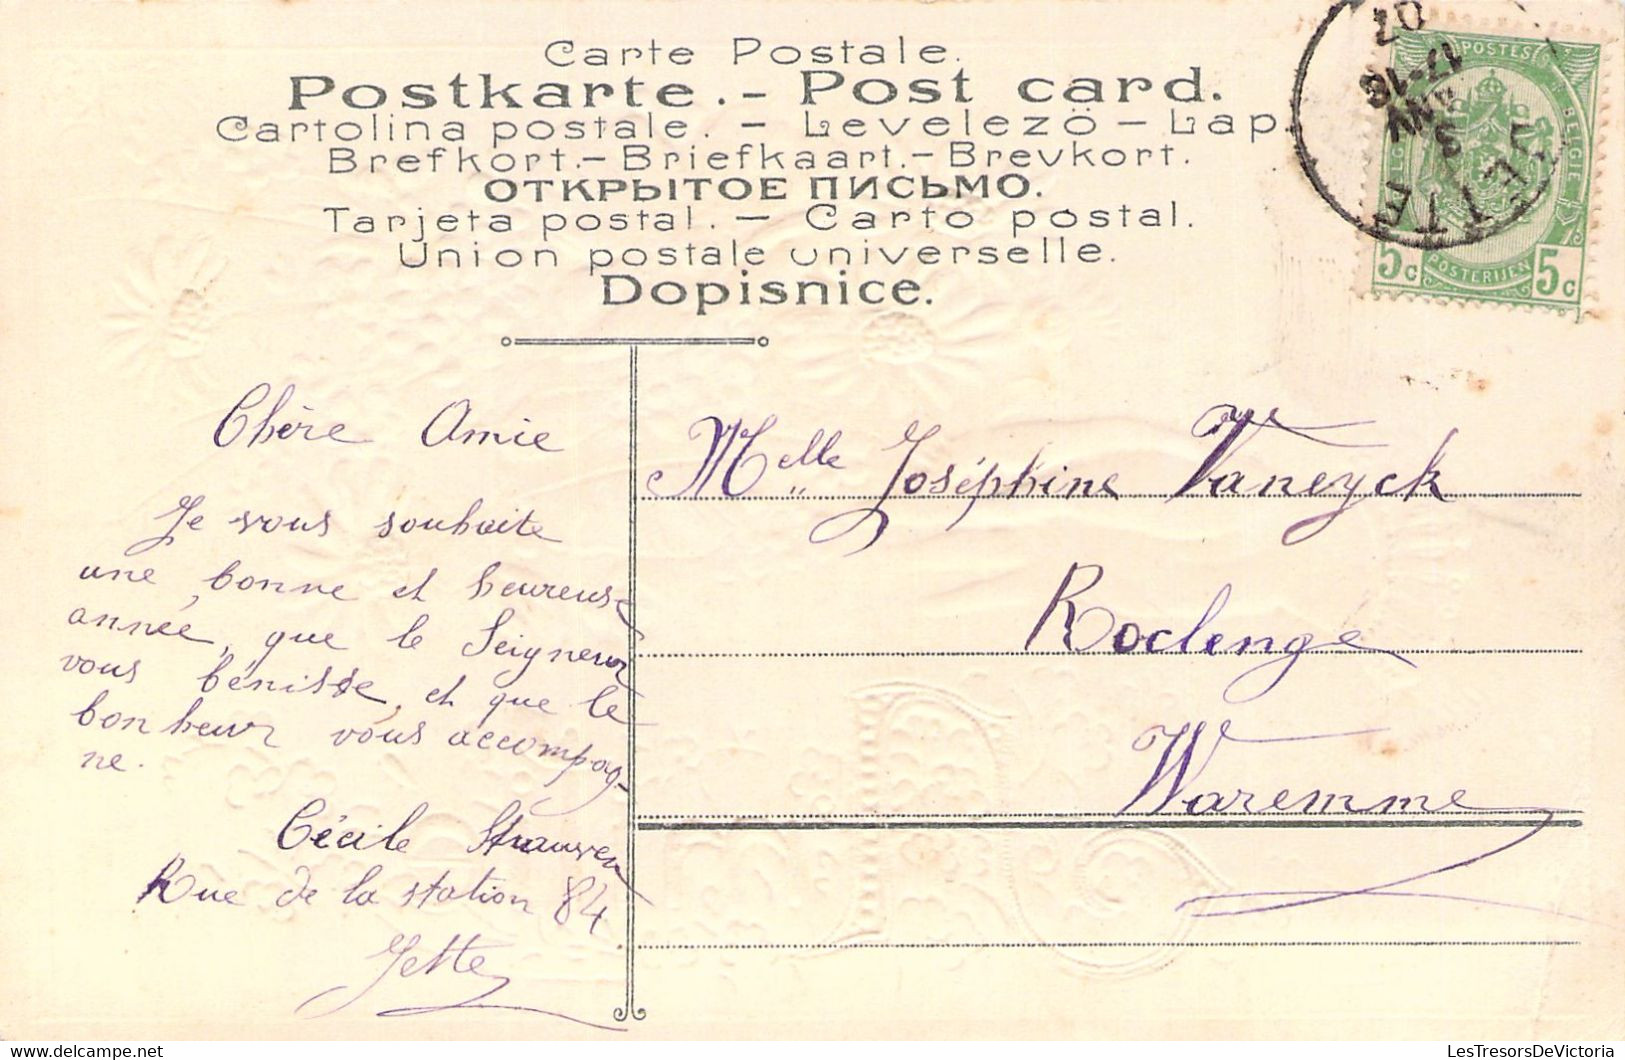 Carte Postale.
Postkarte. - Post card.
Cartolina postale. - Levelezö - Lap.
Brefkort. - Briefkaart. - Brevkort.
ОТКРЫТОЕ ПИСЬМО.
Tarjeta postal. - Carto postal.
Union postale universelle.
Dopisnice.
POSTES
BELGIE
POSTERIJEN
5c
5c
JETTE
3
17-18
07
Chère Amie
Je vous souhaite
une bonne et heureuse
année, que le Seigneur
vous bénisse, et que le
bonheur vous accompag-
ne.
Cécile Strauven
Rue de la station 84
Jette
Melle Joséphine Vaneyck
Roclenge
Waremme
www.delcampe.net
LesTresorsDeVictoria